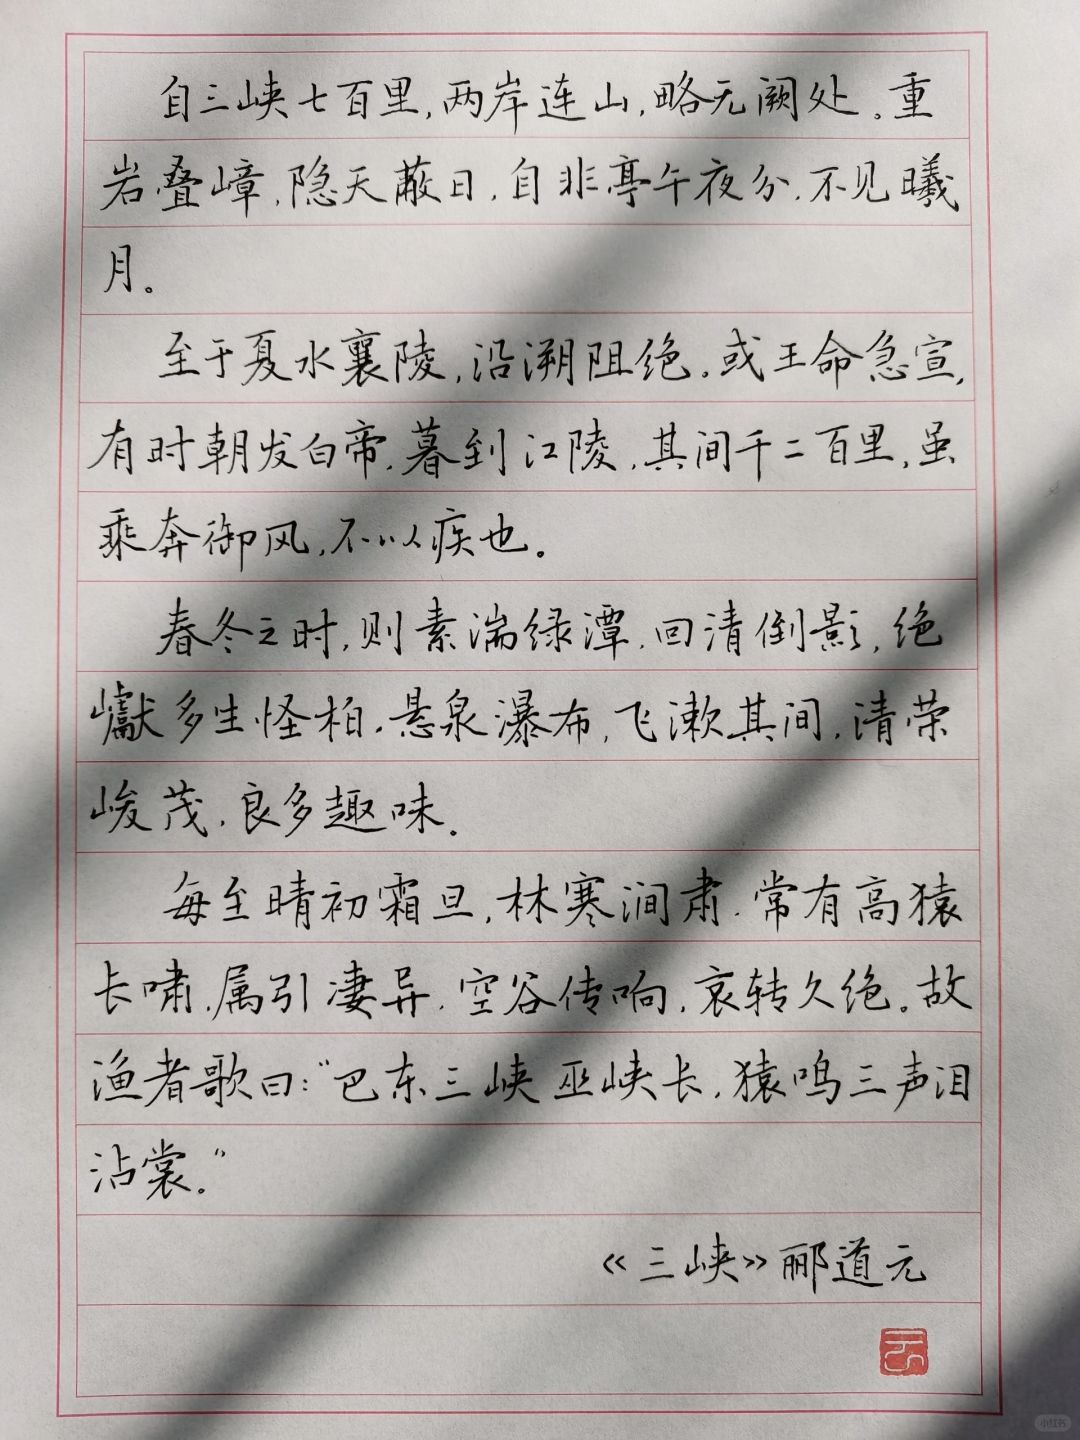 自三峡七百里，两岸连山，略无阙处。重
岩叠嶂，隐天蔽日，自非亭午夜分，不见曦
月。
至于夏水襄陵，沿溯阻绝。或王命急宣，
有时朝发白帝，暮到江陵，其间千二百里，虽
乘奔御风，不以疾也。
春冬之时，则素湍绿潭，回清倒影，绝
巘多生怪柏，悬泉瀑布，飞漱其间，清荣
峻茂，良多趣味。
每至晴初霜旦，林寒涧肃，常有高猿
长啸，属引凄异，空谷传响，哀转久绝。故
渔者歌曰：“巴东三峡巫峡长，猿鸣三声泪
沾裳。”
《三峡》郦道元
云
小红书